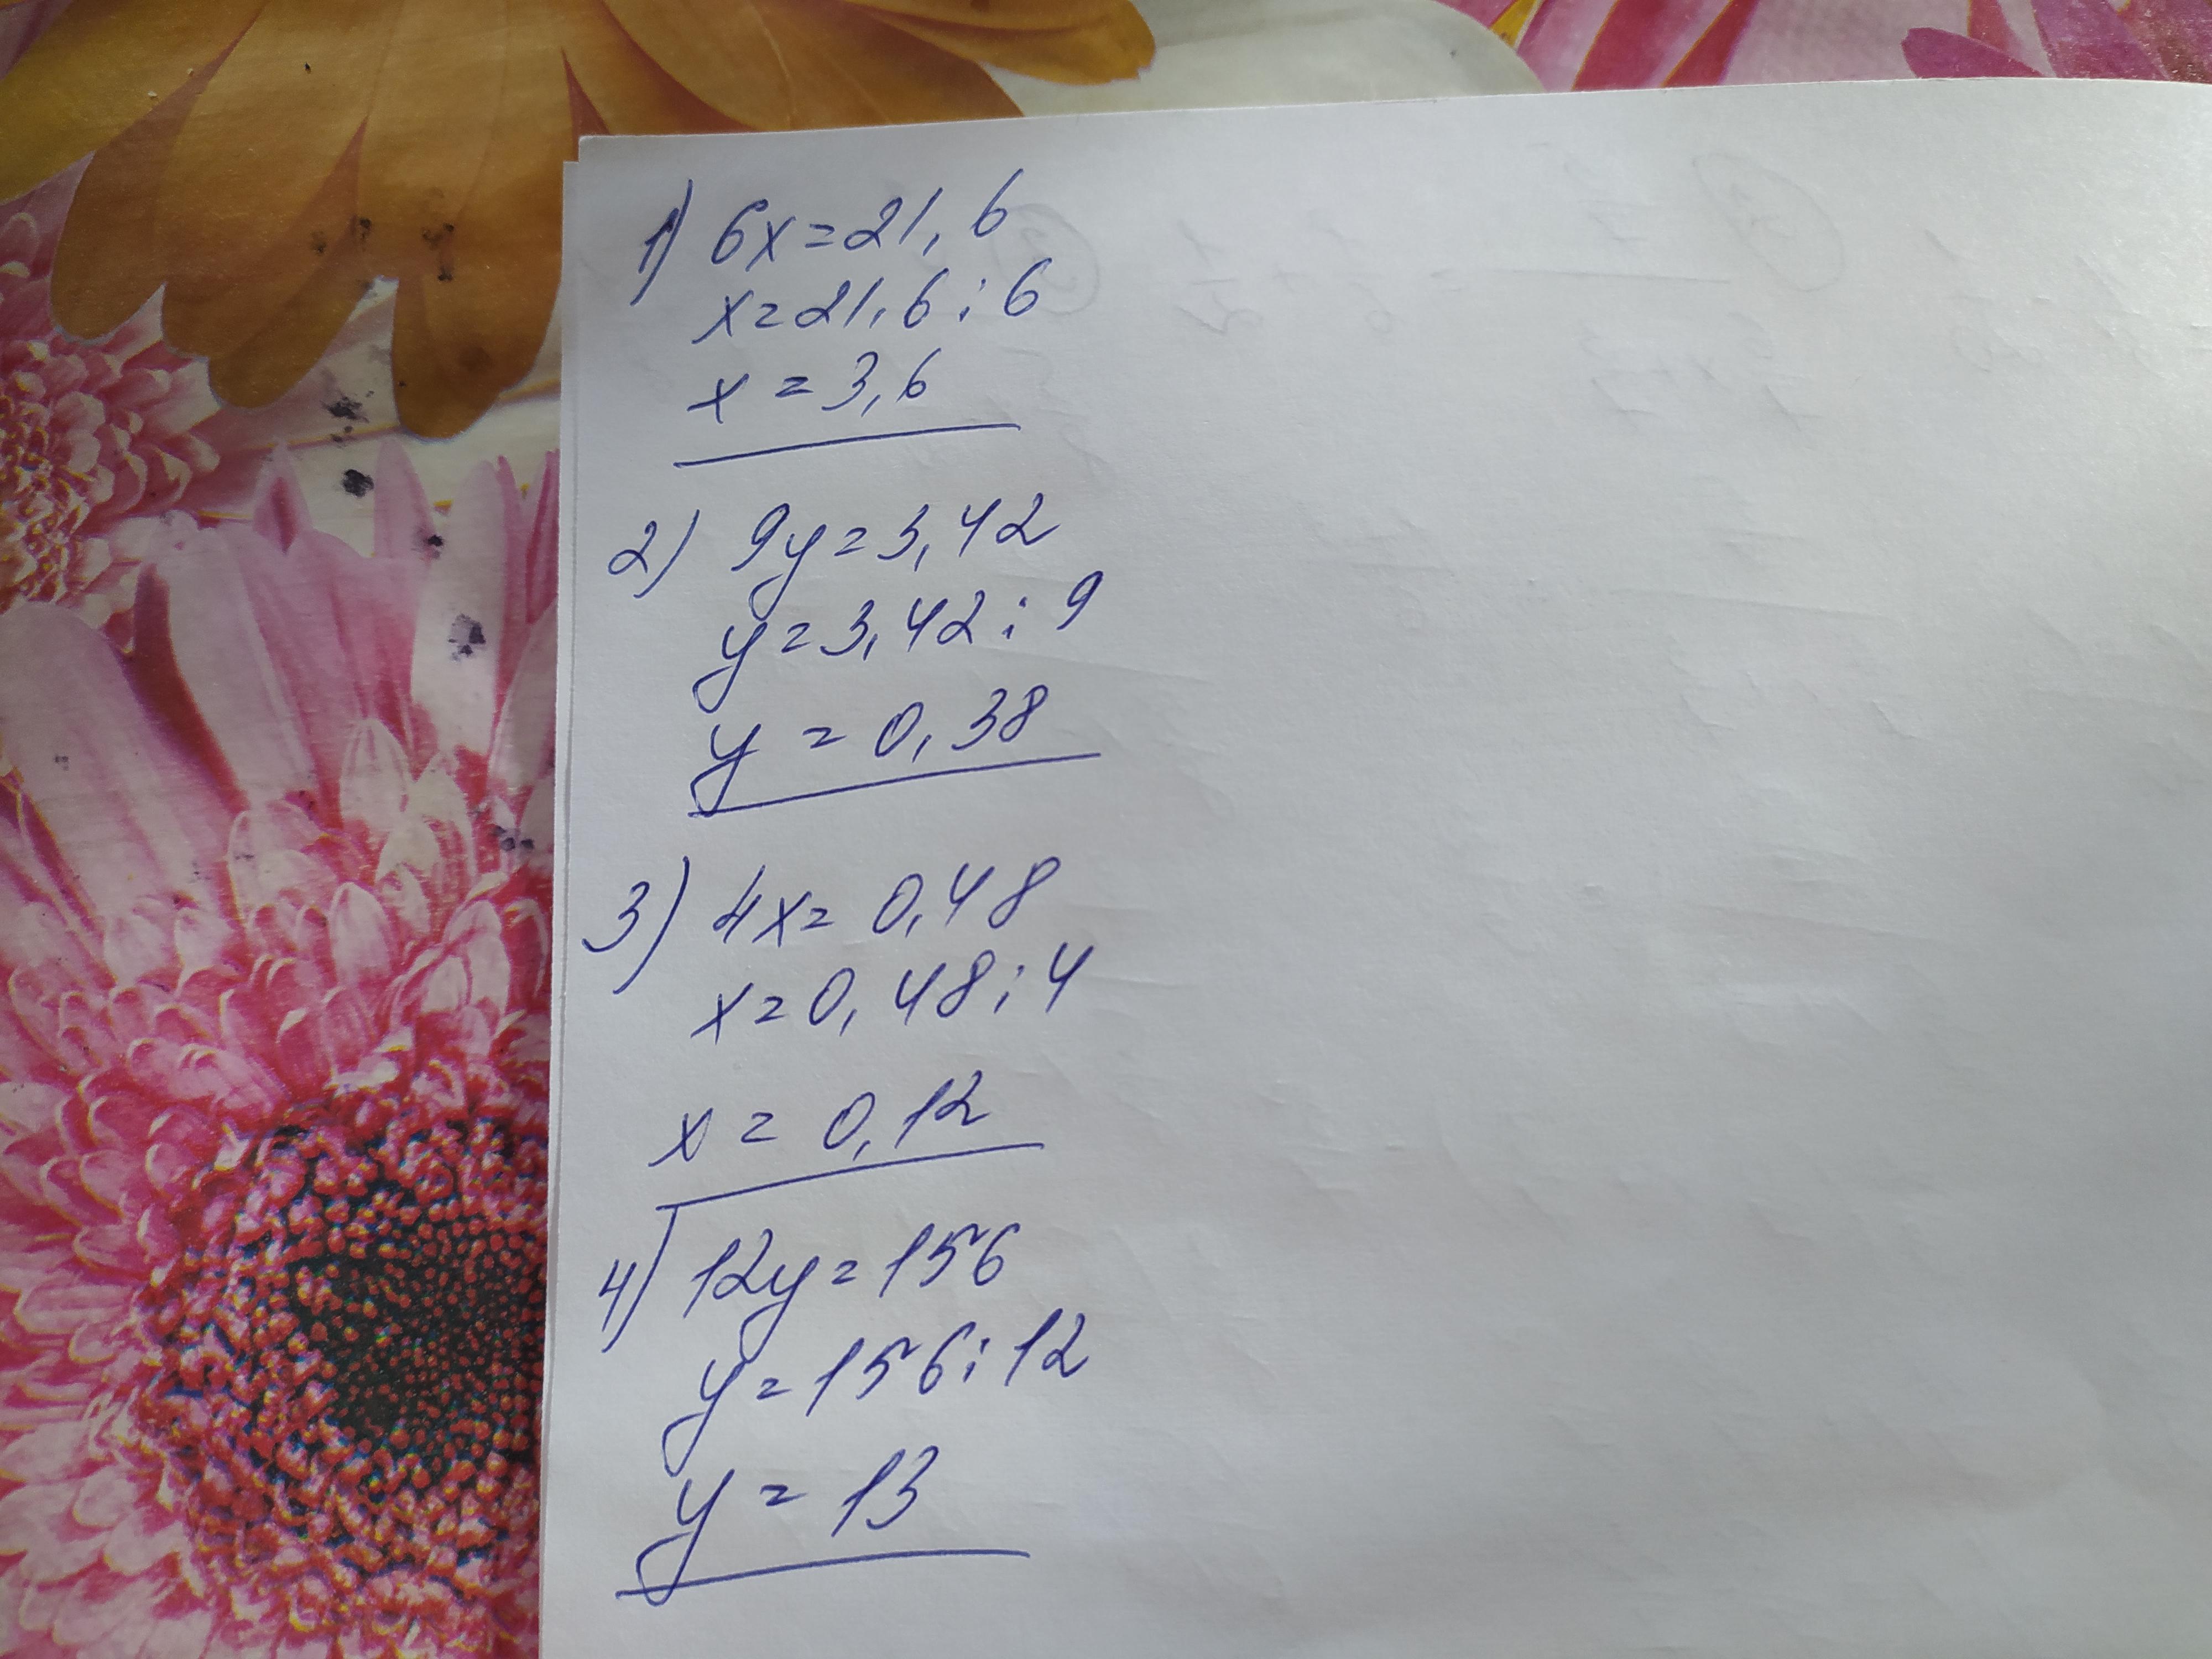 1) 6x=21,6
x=21,6:6
x=3,6
2) 9y=3,42
y=3,42:9
y=0,38
3) 4x=0,48
x=0,48:4
x=0,12
4) 12y=156
y=156:12
y=13